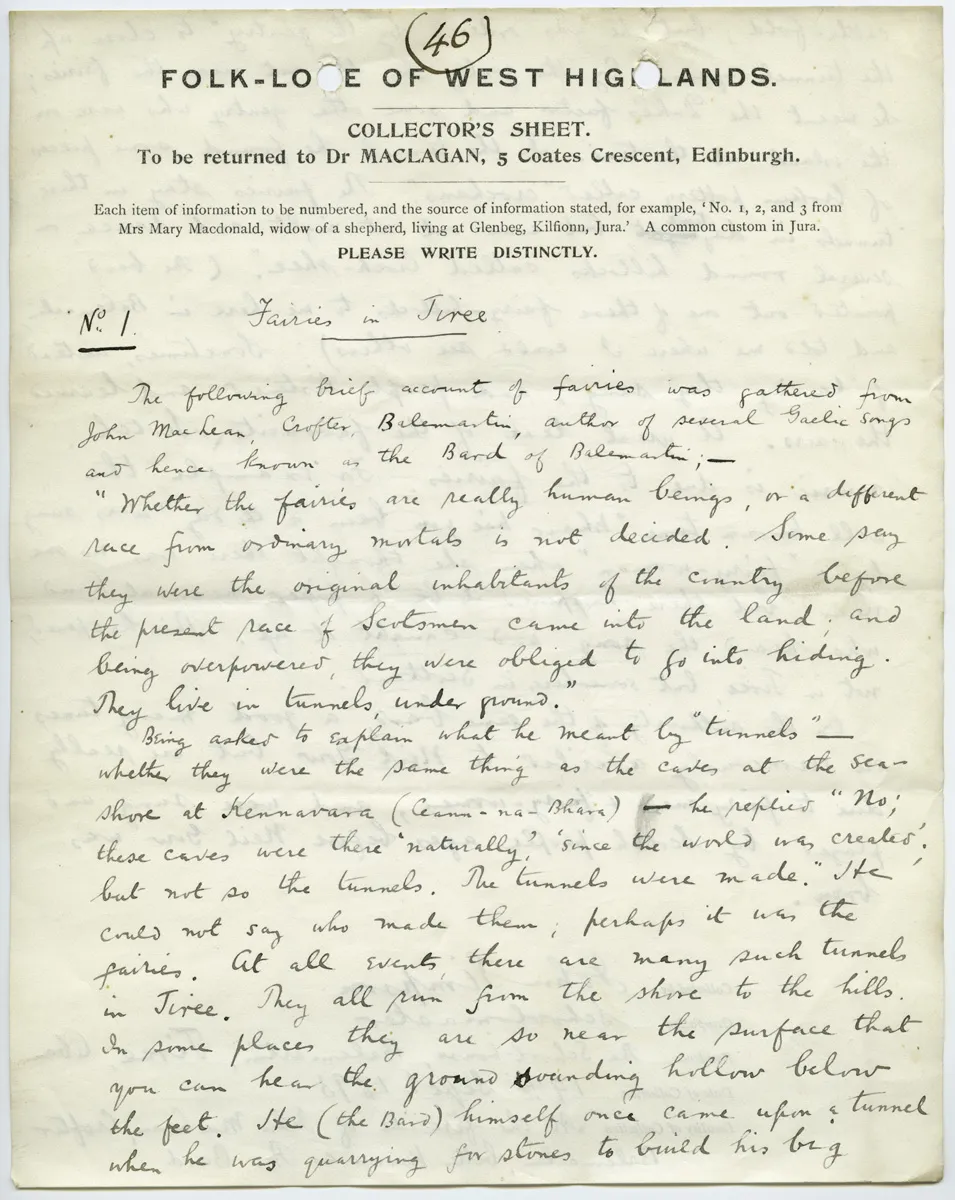 (46)
FOLK-LORE OF WEST HIGHLANDS.
COLLECTOR'S SHEET.
To be returned to Dr MACLAGAN, 5 Coates Crescent, Edinburgh.
Each item of information to be numbered, and the source of information stated, for example, 'No. 1, 2, and 3 from
Mrs Mary Macdonald, widow of a shepherd, living at Glenbeg, Kilfionn, Jura.' A common custom in Jura.
PLEASE WRITE DISTINCTLY.
No. 1. Fairies in Tiree
The following brief account of fairies was gathered from
John MacLean, Crofter, Balemartin, author of several Gaelic songs
and hence known as the Bard of Balemartin;—
"Whether the fairies are really human beings, or a different
race from ordinary mortals is not decided. Some say
they were the original inhabitants of the country before
the present race of Scotsmen came into the land; and
being overpowered, they were obliged to go into hiding.
They live in tunnels, under ground."
Being asked to explain what he meant by "tunnels"—
whether they were the same thing as the caves at the sea-
shore at Kennavara (Ceann-na-Bhara) — he replied "No;
these caves were there 'naturally', 'since the world was created';
but not so the tunnels. The tunnels were made." He
could not say who made them; perhaps it was the
fairies. At all events, there are many such tunnels
in Tiree. They all run from the shore to the hills.
In some places they are so near the surface that
you can hear the ground sounding hollow below
the feet. He (the Bard) himself once came upon a tunnel
when he was quarrying for stones to build his big